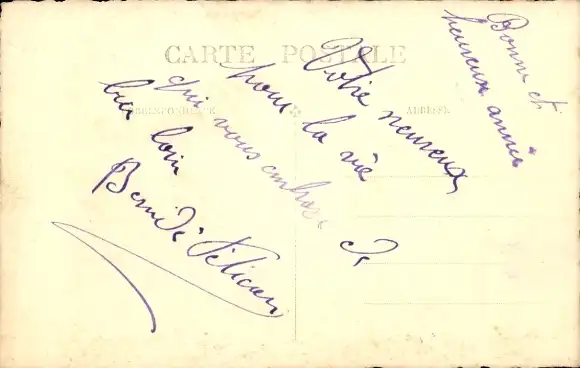 CARTE POSTALE
CORRESPONDANCE
ADRESSE
Bonne et
heureuse année
Votre neureux
pour la vie
qui vous embrasse de
bien loin